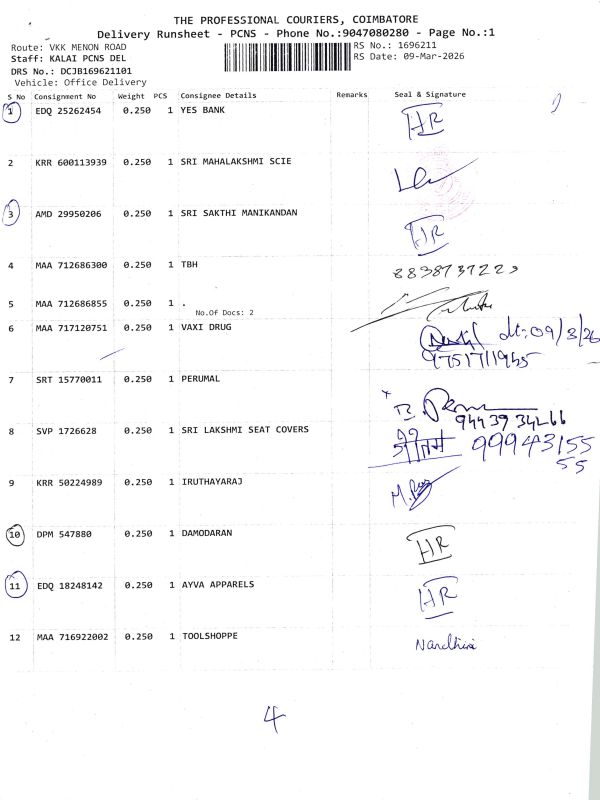 THE PROFESSIONAL COURIERS, COIMBATORE
Delivery Runsheet - PCNS - Phone No.:9047080280 - Page No.:1
Route: VKK MENON ROAD
RS No.: 1696211
Staff: KALAI PCNS DEL
RS Date: 09-Mar-2026
DRS No.: DCJB169621101
Vehicle: Office Delivery
S No Consignment No Weight PCS Consignee Details Remarks Seal & Signature
1 EDQ 25262454 0.250 1 YES BANK HR
2 KRR 600113939 0.250 1 SRI MAHALAKSHMI SCIE
3 AMD 29950206 0.250 1 SRI SAKTHI MANIKANDAN HR
4 MAA 712686300 0.250 1 TBH 8898737229
5 MAA 712686855 0.250 1 .
No.Of Docs: 2
6 MAA 717120751 0.250 1 VAXI DRUG dt:09/3/26
9751711955
7 SRT 15770011 0.250 1 PERUMAL
9443934266
8 SVP 1726628 0.250 1 SRI LAKSHMI SEAT COVERS 99943155
55
9 KRR 50224989 0.250 1 IRUTHAYARAJ
10 DPM 547880 0.250 1 DAMODARAN HR
11 EDQ 18248142 0.250 1 AYVA APPARELS HR
12 MAA 716922002 0.250 1 TOOLSHOPPE Nandhini
4